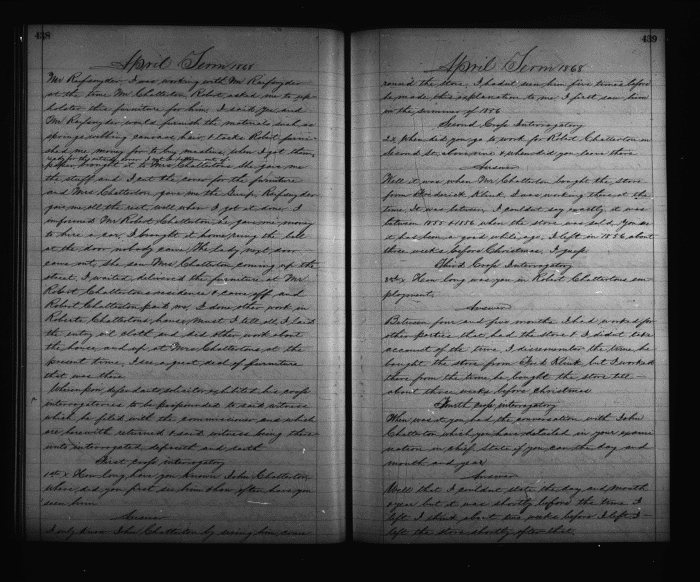 438
April Term 1868
Mr Raifsnyder, I was working with Mr Raifsnyder
at the time Mr Chatterton Robert asked me to up-
holster this furniture for him I said yes and
Mr Raifsnyder would furnish the materials such as
springs webbing canvas hair, tacks Robert furni-
shed me money for to buy muslin, when I got them
I put it to Mrs Chatterton She gave me
the stuff and I cut the cover for the furniture
and Mrs Chatterton gave me the Raifsnyder
gave me all the rest, well when I got it done I
informed Mr Robert Chatterton he gave me money
to hire a car, I brought it home, rung the bell
at the door nobody came The lady next door
came out, she seen Mrs Chatterton coming up the
street, I waited, delivered the furniture at Mr
Robert Chattertons residence & came off and
Robert Chatterton paid me, I done other work in
Roberts Chattertons, house, must I tell all, I laid
the entry oil cloth and did other work about
the house and up at Mrs Chattertons at the
present time, I see a great deal of furniture
that was there
Whereupon defendants solicitor exhibited his cross
interrogatories to be propounded to said witness
which he filed with the commissioner and which
are herewith returned & said witness being there-
unto interrogated, deposeth and saith
First cross interrogatory
1st x How long have you known John Chatterton
where did you first see him & how often have you
seen him
Answer
I only knew John Chatterton by seeing him come
439
April Term 1868
round the store, I hadnt seen him five times before
he made this explanation to me I first saw him
in the summer of 1856
Second Cross Interrogatory
2 x When did you go to work for Robert Chatterton in
Second St above & when did you leave there
Answer
Well it was when Mr Chatterton bought the store
from Frederick Klink I was working there at the
time It was between, I couldnt say exactly it was
between 1855 & 1856 when the store was sold You see
it has been a good while ago, I left in 1856 about
three weeks before Christmas, I
Third Cross Interrogatory
3d x How long was you in Robert Chattertons em-
ployment,
Answer
Between four and five months I had worked for
other parties that had the store & I didnt take
account of the time I disremember the time he
bought the store from Fred Klink but I worked
there from the time he bought the store till
about three weeks before Christmas
Fourth cross interrogatory
When was it you had the conversation with John
Chatterton which you have detailed in your exami-
nation in chief State if you can the day and
month and year
Answer
Well that I couldnt state the day and month
& year but it was shortly before the time I
left I think about weeks before I left I
left the store shortly after that,